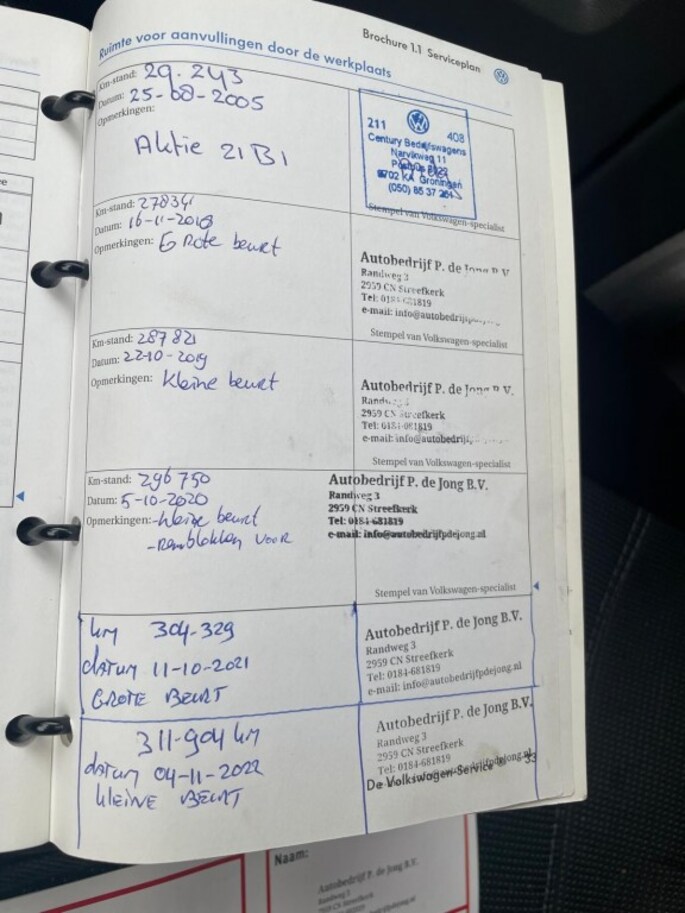 Brochure 1.1 Serviceplan
Ruimte voor aanvullingen door de werkplaats
Km-stand: 29.243
Datum: 25-08-2005
Opmerkingen:
Aktie 21B1
211 408
Century Bedrijfswagens
Narvikweg 11
9702 KA Groningen
Stempel van Volkswagen-specialist
Km-stand: 278341
Datum: 16-11-2018
Opmerkingen: Grote beurt
Autobedrijf P. de Jong B.V.
Randweg 3
2959 CN Streefkerk
Stempel van Volkswagen-specialist
Km-stand: 287821
Datum: 22-10-2019
Opmerkingen: Kleine beurt
Autobedrijf P. de Jong B.V.
2959 CN Streefkerk
Stempel van Volkswagen-specialist
Km-stand: 296750
Datum: 5-10-2020
Opmerkingen: -kleine beurt
-remblokken voor
Autobedrijf P. de Jong B.V.
Randweg 3
2959 CN Streefkerk
Tel: 0184-681819
e-mail: info@autobedrijfpdejong.nl
Stempel van Volkswagen-specialist
km 304-329
datum 11-10-2021
GROTE BEURT
Autobedrijf P. de Jong B.V.
Randweg 3
2959 CN Streefkerk
Tel: 0184-681819
e-mail: info@autobedrijfpdejong.nl
311-904 km
datum 04-11-2022
kleine BEURT
Autobedrijf P. de Jong B.V.
Randweg 3
2959 CN Streefkerk
Tel: 0184-681819
De Volkswagen Service 33
Naam:
Autobedrijf P. de Jong B.V.
Randweg 3